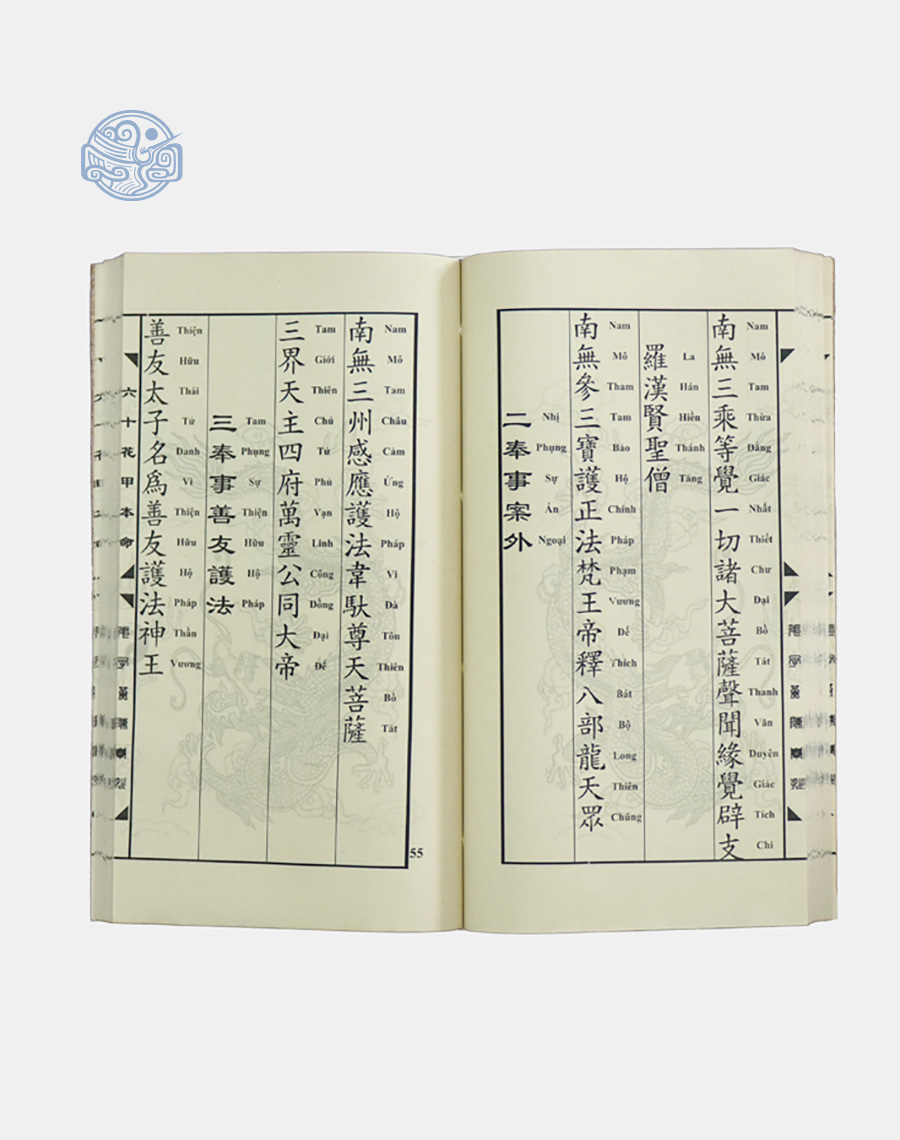 南無三乘等覺一切諸大菩薩聲聞緣覺辟支
Nam Mô Tam Thừa Đẳng Giác Nhất Thiết Chư Đại Bồ Tát Thanh Văn Duyên Giác Tích Chi
羅漢賢聖僧
La Hán Hiền Thánh Tăng
南無參三寶護正法梵王帝釋八部龍天眾
Nam Mô Tham Tam Bảo Hộ Chính Pháp Phạm Vương Đế Thích Bát Bộ Long Thiên Chúng
二奉事案外
Nhị Phụng Sự Án Ngoại
南無三州感應護法韋馱尊天菩薩
Nam Mô Tam Châu Cảm Ứng Hộ Pháp Vi Đà Tôn Thiên Bồ Tát
三界天主四府萬靈公同大帝
Tam Giới Thiên Chủ Tứ Phủ Vạn Linh Công Đồng Đại Đế
三奉事善友護法
Tam Phụng Sự Thiện Hữu Hộ Pháp
善友太子名為善友護法神王
Thiện Hữu Thái Tử Danh Vi Thiện Hữu Hộ Pháp Thần Vương
六十花甲本命
55